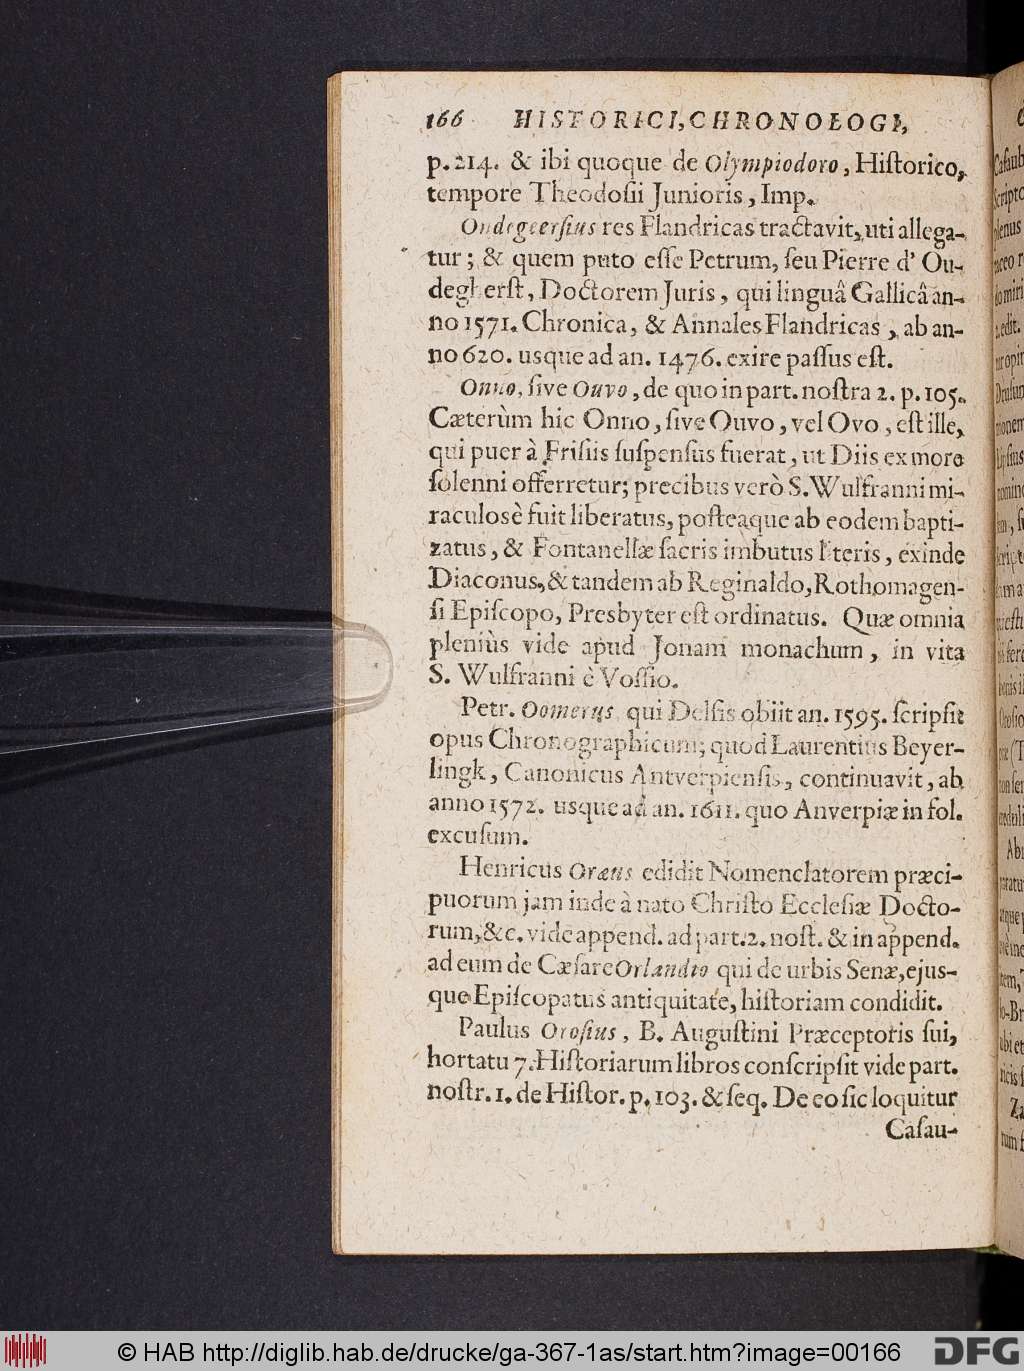 166 HISTORICI, CHRONOLOGI,
p. 214. & ibi quoque de Olympiodoro, Hiſtorico,
tempore Theodoſii Junioris, Imp.
Oudegeerſius res Flandricas tractavit, uti allega-
tur; & quem puto eſſe Petrum, ſeu Pierre d' Ou-
degherſt, Doctorem Juris, qui linguâ Gallicâ an-
no 1571. Chronica, & Annales Flandricas, ab an-
no 620. usque ad an. 1476. exire paſſus eſt.
Onno, ſive Ouvo, de quo in part. noſtra 2. p. 105.
Cæterùm hic Onno, ſive Ouvo, vel Ovo, eſt ille,
qui puer à Friſiis ſuſpenſus fuerat, ut Diis ex more
ſolenni offerretur; precibus verò S. Wulfranni mi-
raculosè fuit liberatus, poſteaque ab eodem bapti-
zatus, & Fontanellæ ſacris imbutus literis, exinde
Diaconus, & tandem ab Reginaldo, Rothomagen-
ſi Epiſcopo, Presbyter eſt ordinatus. Quæ omnia
pleniùs vide apud Jonam monachum, in vita
S. Wulfranni è Voſſio.
Petr. Oomerus qui Delfis obiit an. 1595. ſcripſit
opus Chronographicum; quod Laurentius Beyer-
lingk, Canonicus Antverpienſis, continuavit, ab
anno 1572. usque ad an. 1611. quo Anverpiæ in fol.
excuſum.
Henricus Oræus edidit Nomenclatorem præci-
puorum jam inde à nato Chriſto Eccleſiæ Docto-
rum, &c. vide append. ad part. 2. noſt. & in append.
ad eum de Cæſare Orlandio qui de urbis Senæ, ejus-
que Epiſcopatus antiquitate, hiſtoriam condidit.
Paulus Oroſius, B. Auguſtini Præceptoris ſui,
hortatu 7. Hiſtoriarum libros conſcripſit vide part.
noſtr. 1. de Hiſtor. p. 103. & ſeq. De eo ſic loquitur
Caſau-
© HAB http://diglib.hab.de/drucke/ga-367-1as/start.htm?image=00166
DFG